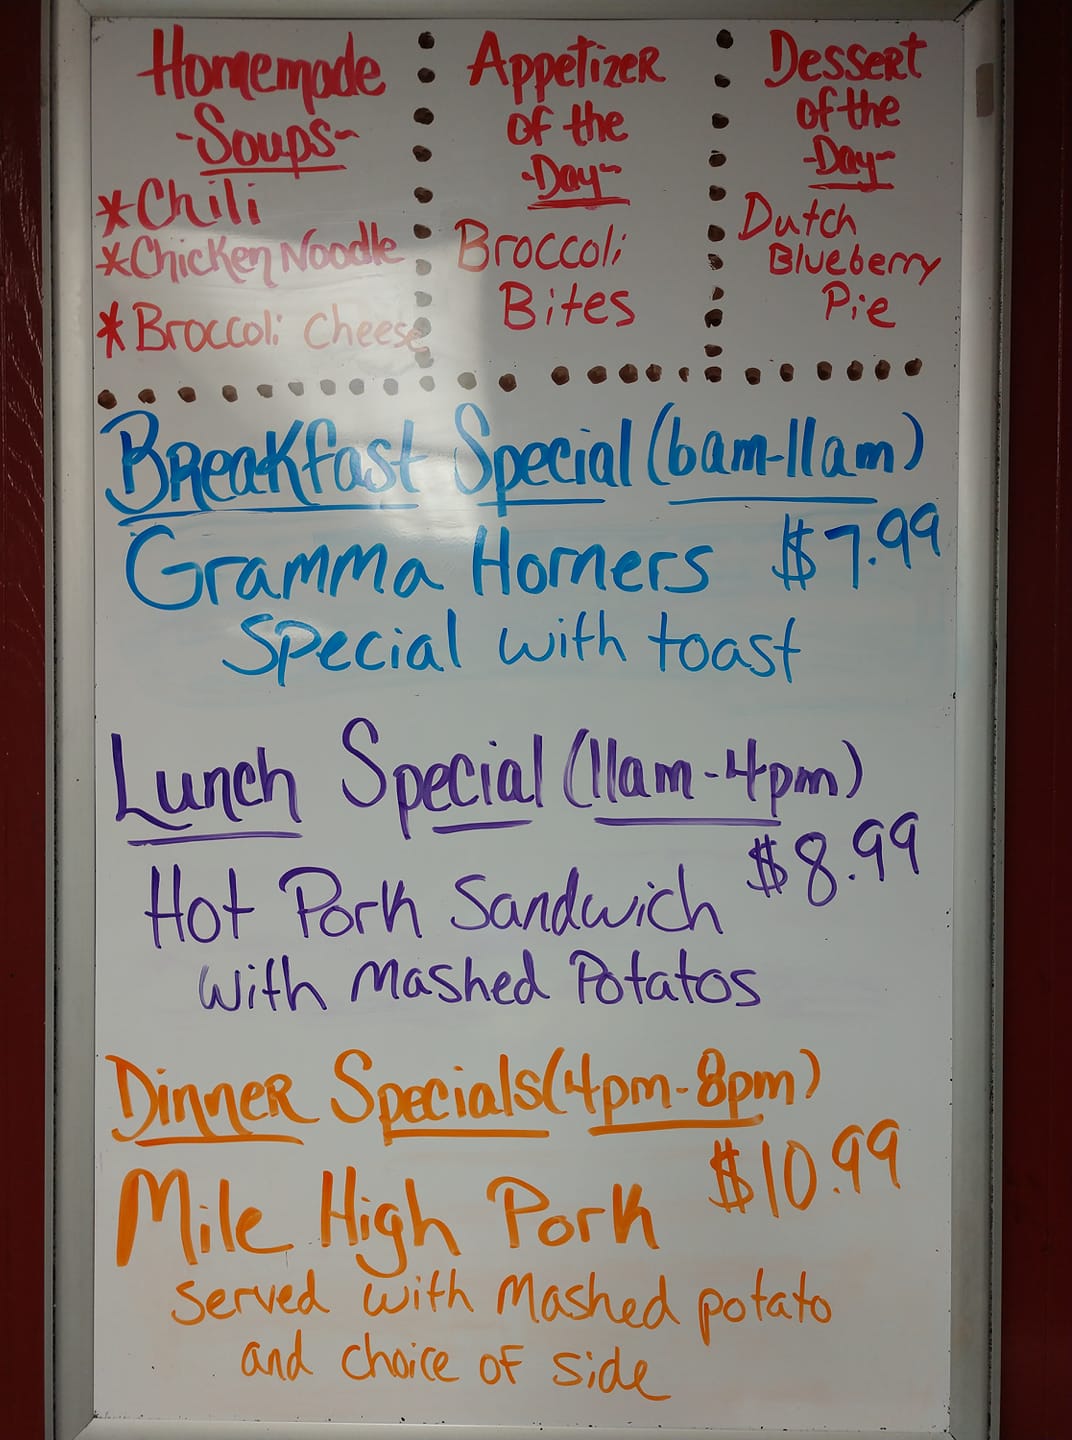 Homemade
-Soups-
*Chili
*Chicken Noodle
*Broccoli Cheese
Appetizer
of the
-Day-
Broccoli
Bites
Dessert
of the
-Day-
Dutch
Blueberry
Pie
Breakfast Special (6am-11am)
Gramma Horners $7.99
Special with toast
Lunch Special (11am-4pm)
$8.99
Hot Pork Sandwich
with Mashed Potatos
Dinner Specials (4pm-8pm)
$10.99
Mile High Pork
served with Mashed potato
and choice of side